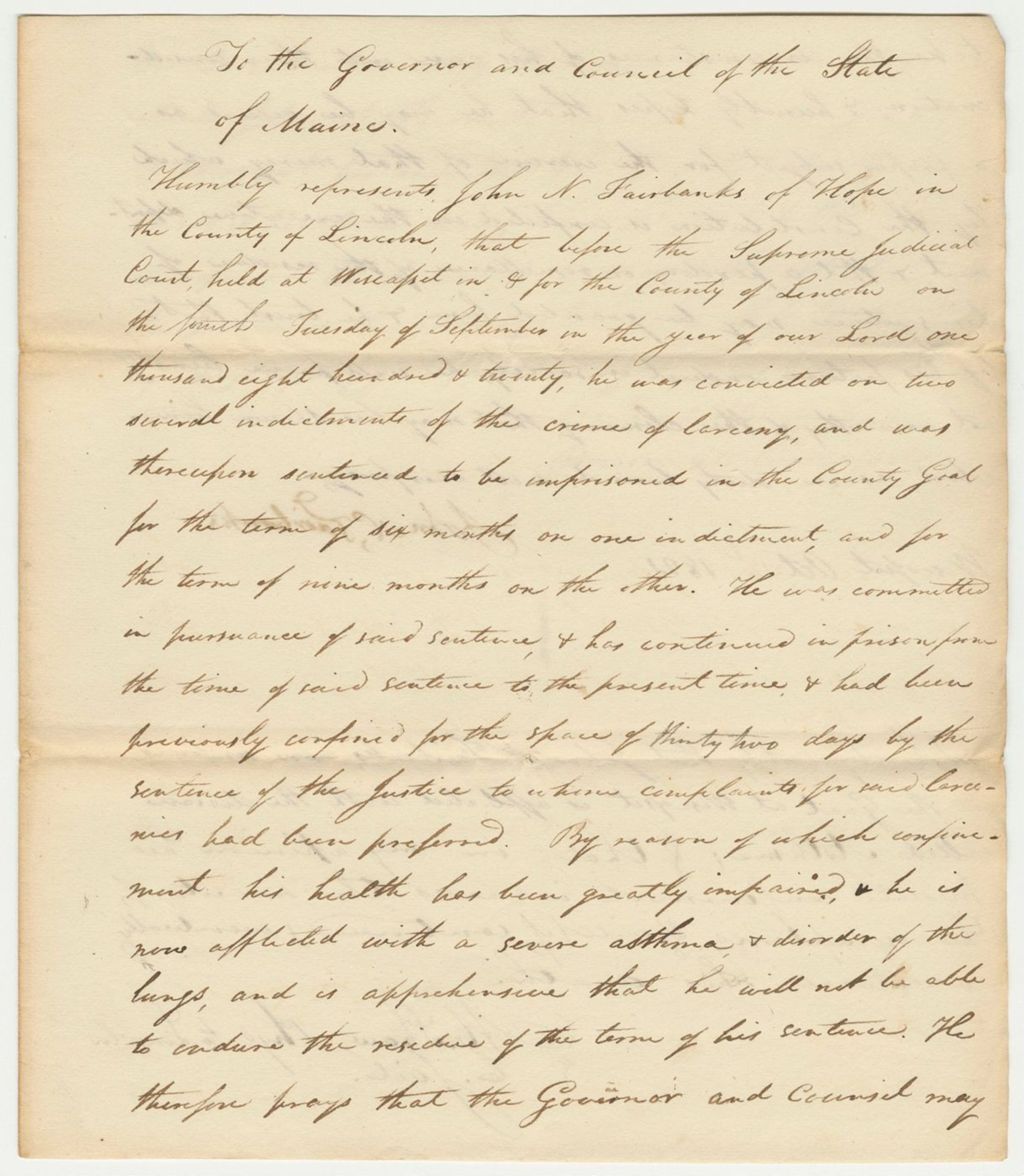 To the Governor and Council of the State
of Maine.
Humbly represents John N. Fairbanks of Hope in
the County of Lincoln, that before the Supreme Judicial
Court, held at Wiscasset in & for the County of Lincoln on
the fourth Tuesday of September in the year of our Lord one
thousand eight hundred & twenty, he was convicted on two
several indictments of the crime of larceny, and was
thereupon sentenced to be imprisoned in the County Goal
for the term of six months on one indictment, and for
the term of nine months on the other. He was committed
in pursuance of said sentence, & has continued in prison from
the time of said sentence to the present time, & had been
previously confined for the space of thirty two days by the
sentence of the Justice to whom complaints for said larce-
nies had been preferred. By reason of which confine-
ment his health has been greatly impaired, & he is
now afflicted with a severe asthma, & disorder of the
lungs, and is apprehensive that he will not be able
to endure the residue of the term of his sentence. He
therefore prays that the Governor and Counsel may